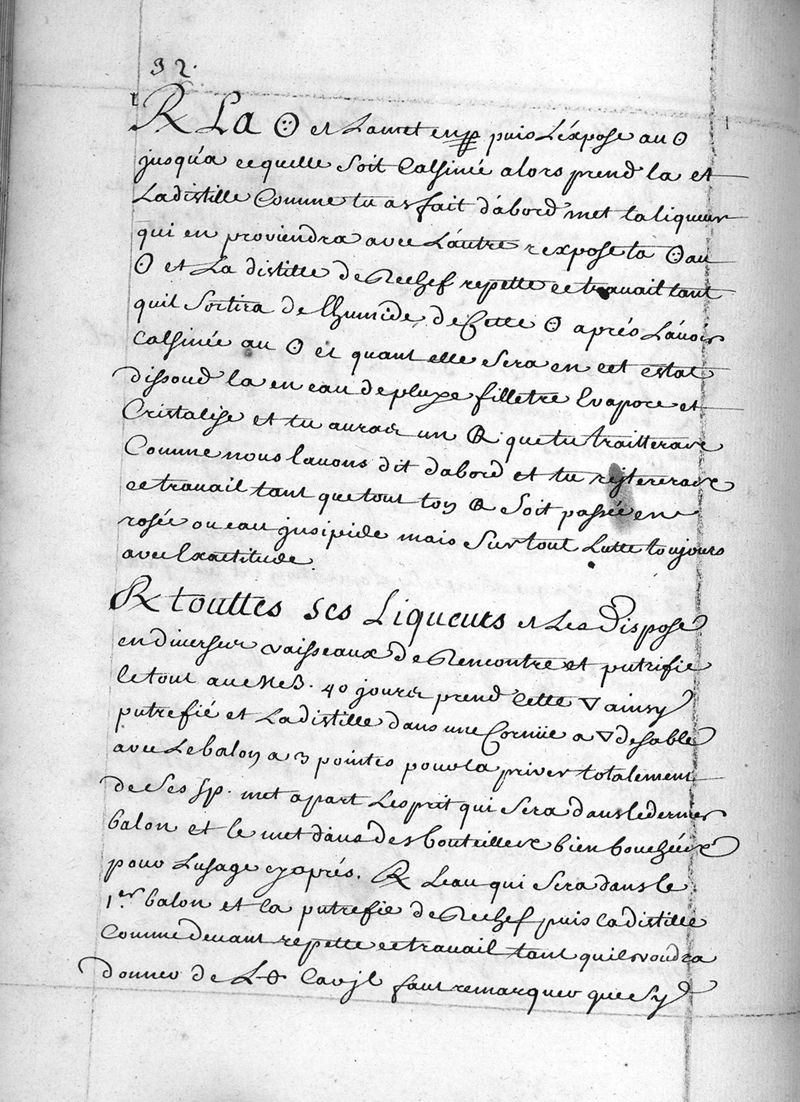 32.
℞ La ☉ et Lamet en puis L'expose au ☉
jusqua ce quelle soit Calsinée alors prend la et
La distille Comme tu as fait d'abord met la liqueur
qui en proviendra avec L'autre rexpose ta ☉ au
☉ et La distille de Rechef repette ce travail tant
quil Sortira de lhumide de Cette ☉ aprés L'avoir
Calsinée au ☉ et quant elle Sera en cet estat
dissoud la en eau de pluye filletre Evapore et
Cristalise et tu auras un que tu traitteras
Comme nous lavons dit d'abord et tu reÿtereras
ce travail tant que tout ton Soit passée en
rosée ou eau jnsipide mais Surtout Lutte toujours
avec Exactitude.
℞ touttes ses Liqueurs et Les Dispose
en diverses vaisseaux de Rencontre et putrifie
le tout au MB. 40 jours prend Cette ▽ ainsy
putrefié et La distille dans une Cornüe a ▽ de sable
avec Le balon a 3 pointes pour la priver totalement
de Ses Sp. met apart L'esprit qui Sera dans le dernier
balon et le met dans des bouteilles bien bouchées
pour L'usage cy aprés. ℞ L'eau qui Sera dans le
1.er balon et la putrefie de Rechef puis la distille
Comme devant repette ce travail tant quil voudra
donner de L'☩ Car jl faut remarquer que Sy